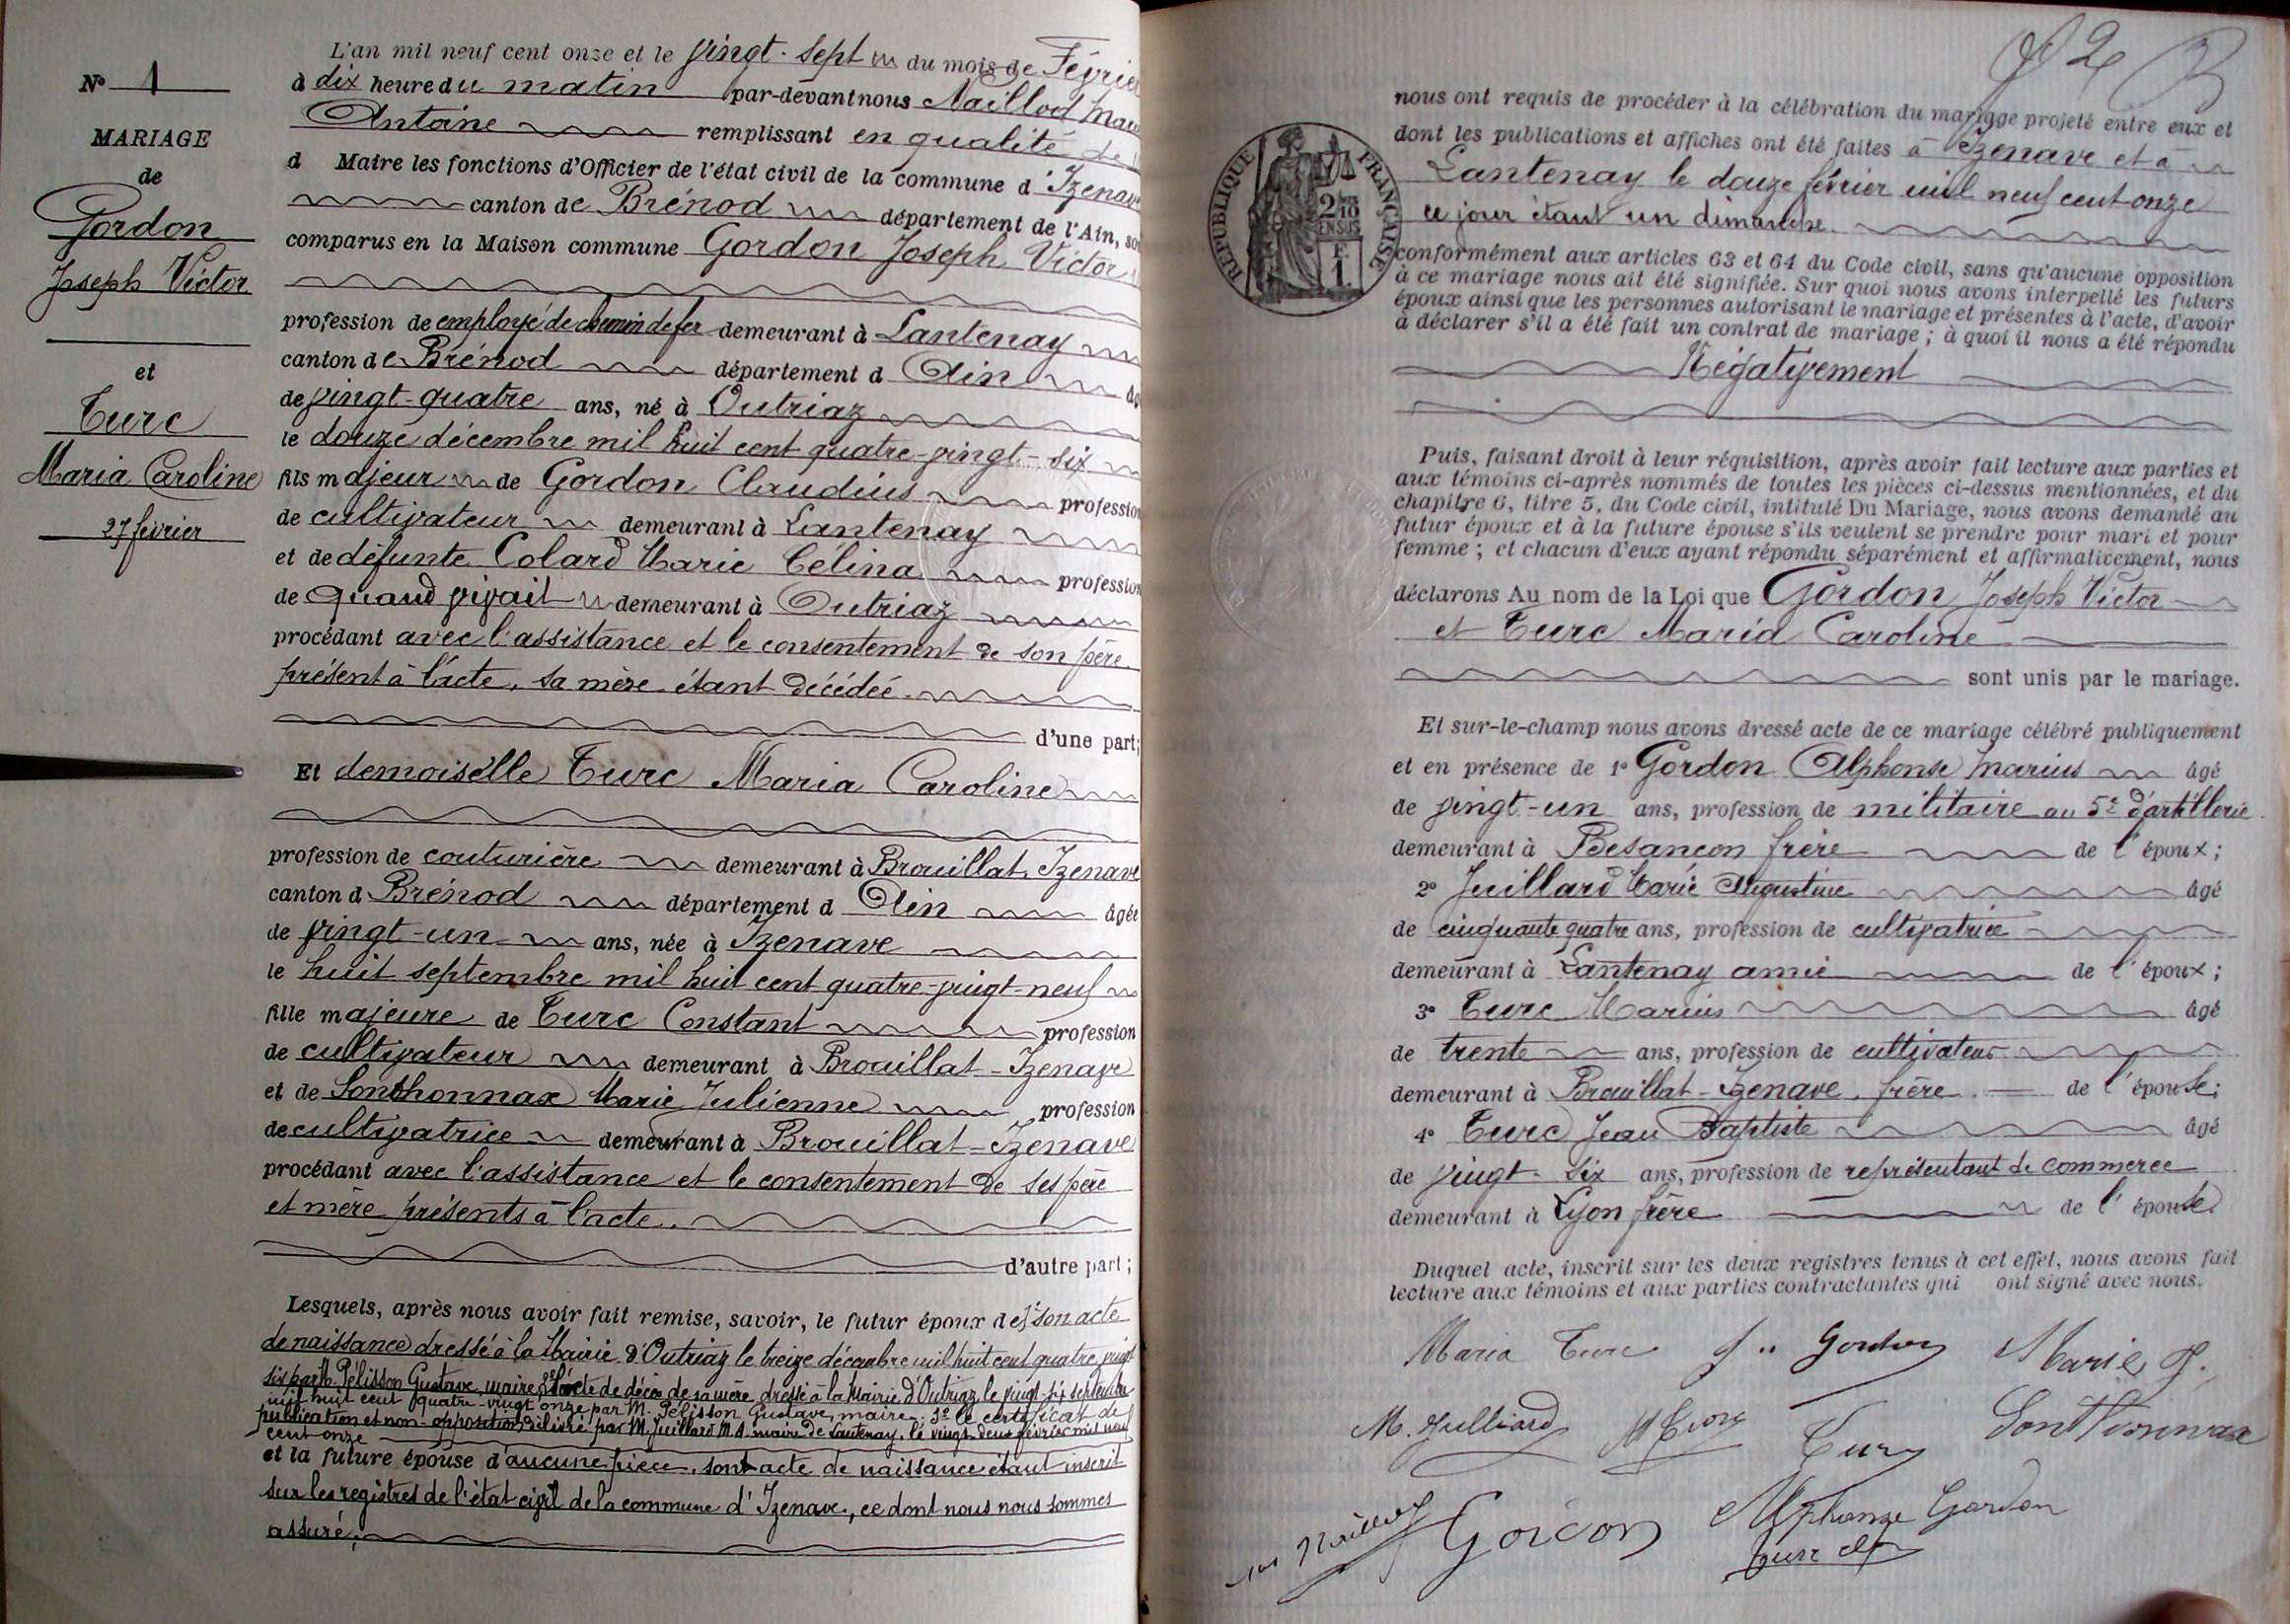 N° 1
MARIAGE
de
Gordon
Joseph Victor
et
Turc
Maria Caroline
27 février
L'an mil neuf cent onze et le vingt-sept du mois de Févrie
à dix heure du matin par-devant nous Naillod
Antoine remplissant en qualité de
d Maire les fonctions d'Officier de l'état civil de la commune d'Izenave
canton de Brénod département de l'Ain, so
comparus en la Maison commune Gordon Joseph Victor
profession de employé de chemin de fer demeurant à Lantenay
canton de Brénod département d Ain
de vingt-quatre ans, né à Outriaz
le douze décembre mil huit cent quatre-vingt-six
fils majeur de Gordon Claudius profession
de cultivateur demeurant à Lantenay
et de défunte Colard Marie Célina profession
de quand vivait demeurant à Outriaz
procédant avec l'assistance et le consentement de son père
présent à l'acte, sa mère étant décédée.
d'une part;
Et demoiselle Turc Maria Caroline
profession de couturière demeurant à Brouillat, Izenave
canton d Brénod département d Ain âgée
de vingt-un ans, née à Izenave
le huit septembre mil huit cent quatre-vingt-neuf
fille majeure de Turc Constant profession
de cultivateur demeurant à Brouillat-Izenave
et de Sonthonnax Marie Julienne profession
de cultivatrice demeurant à Brouillat-Izenave
procédant avec l'assistance et le consentement de ses père
et mère présents à l'acte.
d'autre part;
Lesquels, après nous avoir fait remise, savoir, le futur époux de 1° son acte
de naissance dressé à la Mairie d'Outriaz le treize décembre mil huit cent quatre vingt
six par M. Pélisson Gustave, maire, 2° l'acte de décès de sa mère dressé à la Mairie d'Outriaz le vingt-six septembre
mil huit cent quatre-vingt onze par M. Pélisson Gustave, maire. 3° le certificat de
publication et non-opposition délivré par M. Juillard M. A. maire de Lantenay, le vingt-deux février mil neuf
cent onze
et la future épouse d'aucune pièce, son acte de naissance étant inscrit
sur les registres de l'état civil de la commune d'Izenave, ce dont nous nous sommes
assuré.
2
nous ont requis de procéder à la célébration du mariage projeté entre eux et
dont les publications et affiches ont été faites à Izenave et à
Lantenay le douze février mil neuf cent onze
ce jour étant un dimanche.
RÉPUBLIQUE FRANÇAISE
2/10
EN SUS
F.
1.
conformément aux articles 63 et 64 du Code civil, sans qu'aucune opposition
à ce mariage nous ait été signifiée. Sur quoi nous avons interpellé les futurs
époux ainsi que les personnes autorisant le mariage et présentes à l'acte, d'avoir
à déclarer s'il a été fait un contrat de mariage; à quoi il nous a été répondu
Négativement
Puis, faisant droit à leur réquisition, après avoir fait lecture aux parties et
aux témoins ci-après nommés de toutes les pièces ci-dessus mentionnées, et du
chapitre 6, titre 5, du Code civil, intitulé Du Mariage, nous avons demandé au
futur époux et à la future épouse s'ils veulent se prendre pour mari et pour
femme; et chacun d'eux ayant répondu séparément et affirmativement, nous
déclarons Au nom de la Loi que Gordon Joseph Victor
et Turc Maria Caroline
sont unis par le mariage.
Et sur-le-champ nous avons dressé acte de ce mariage célébré publiquement
et en présence de 1° Gordon Alphonse Marius âgé
de vingt-un ans, profession de militaire au 5e d'artillerie
demeurant à Besançon frère de l'époux;
2° Juillard Marie Augustine âgé
de cinquante quatre ans, profession de cultivatrice
demeurant à Lantenay amie de l'époux;
3° Turc Marius âgé
de trente ans, profession de cultivateur
demeurant à Brouillat-Izenave, frère de l'épouse;
4° Turc Jean Baptiste âgé
de vingt-six ans, profession de représentant de commerce
demeurant à Lyon frère de l'épouse
Duquel acte, inscrit sur les deux registres tenus à cet effet, nous avons fait
lecture aux témoins et aux parties contractantes qui ont signé avec nous.
Maria Turc J.. Gordon Marie J.
M. Julliard M Turc Turc Sonthonnax
Naillod Gordon Alphonse Gordon
Turc